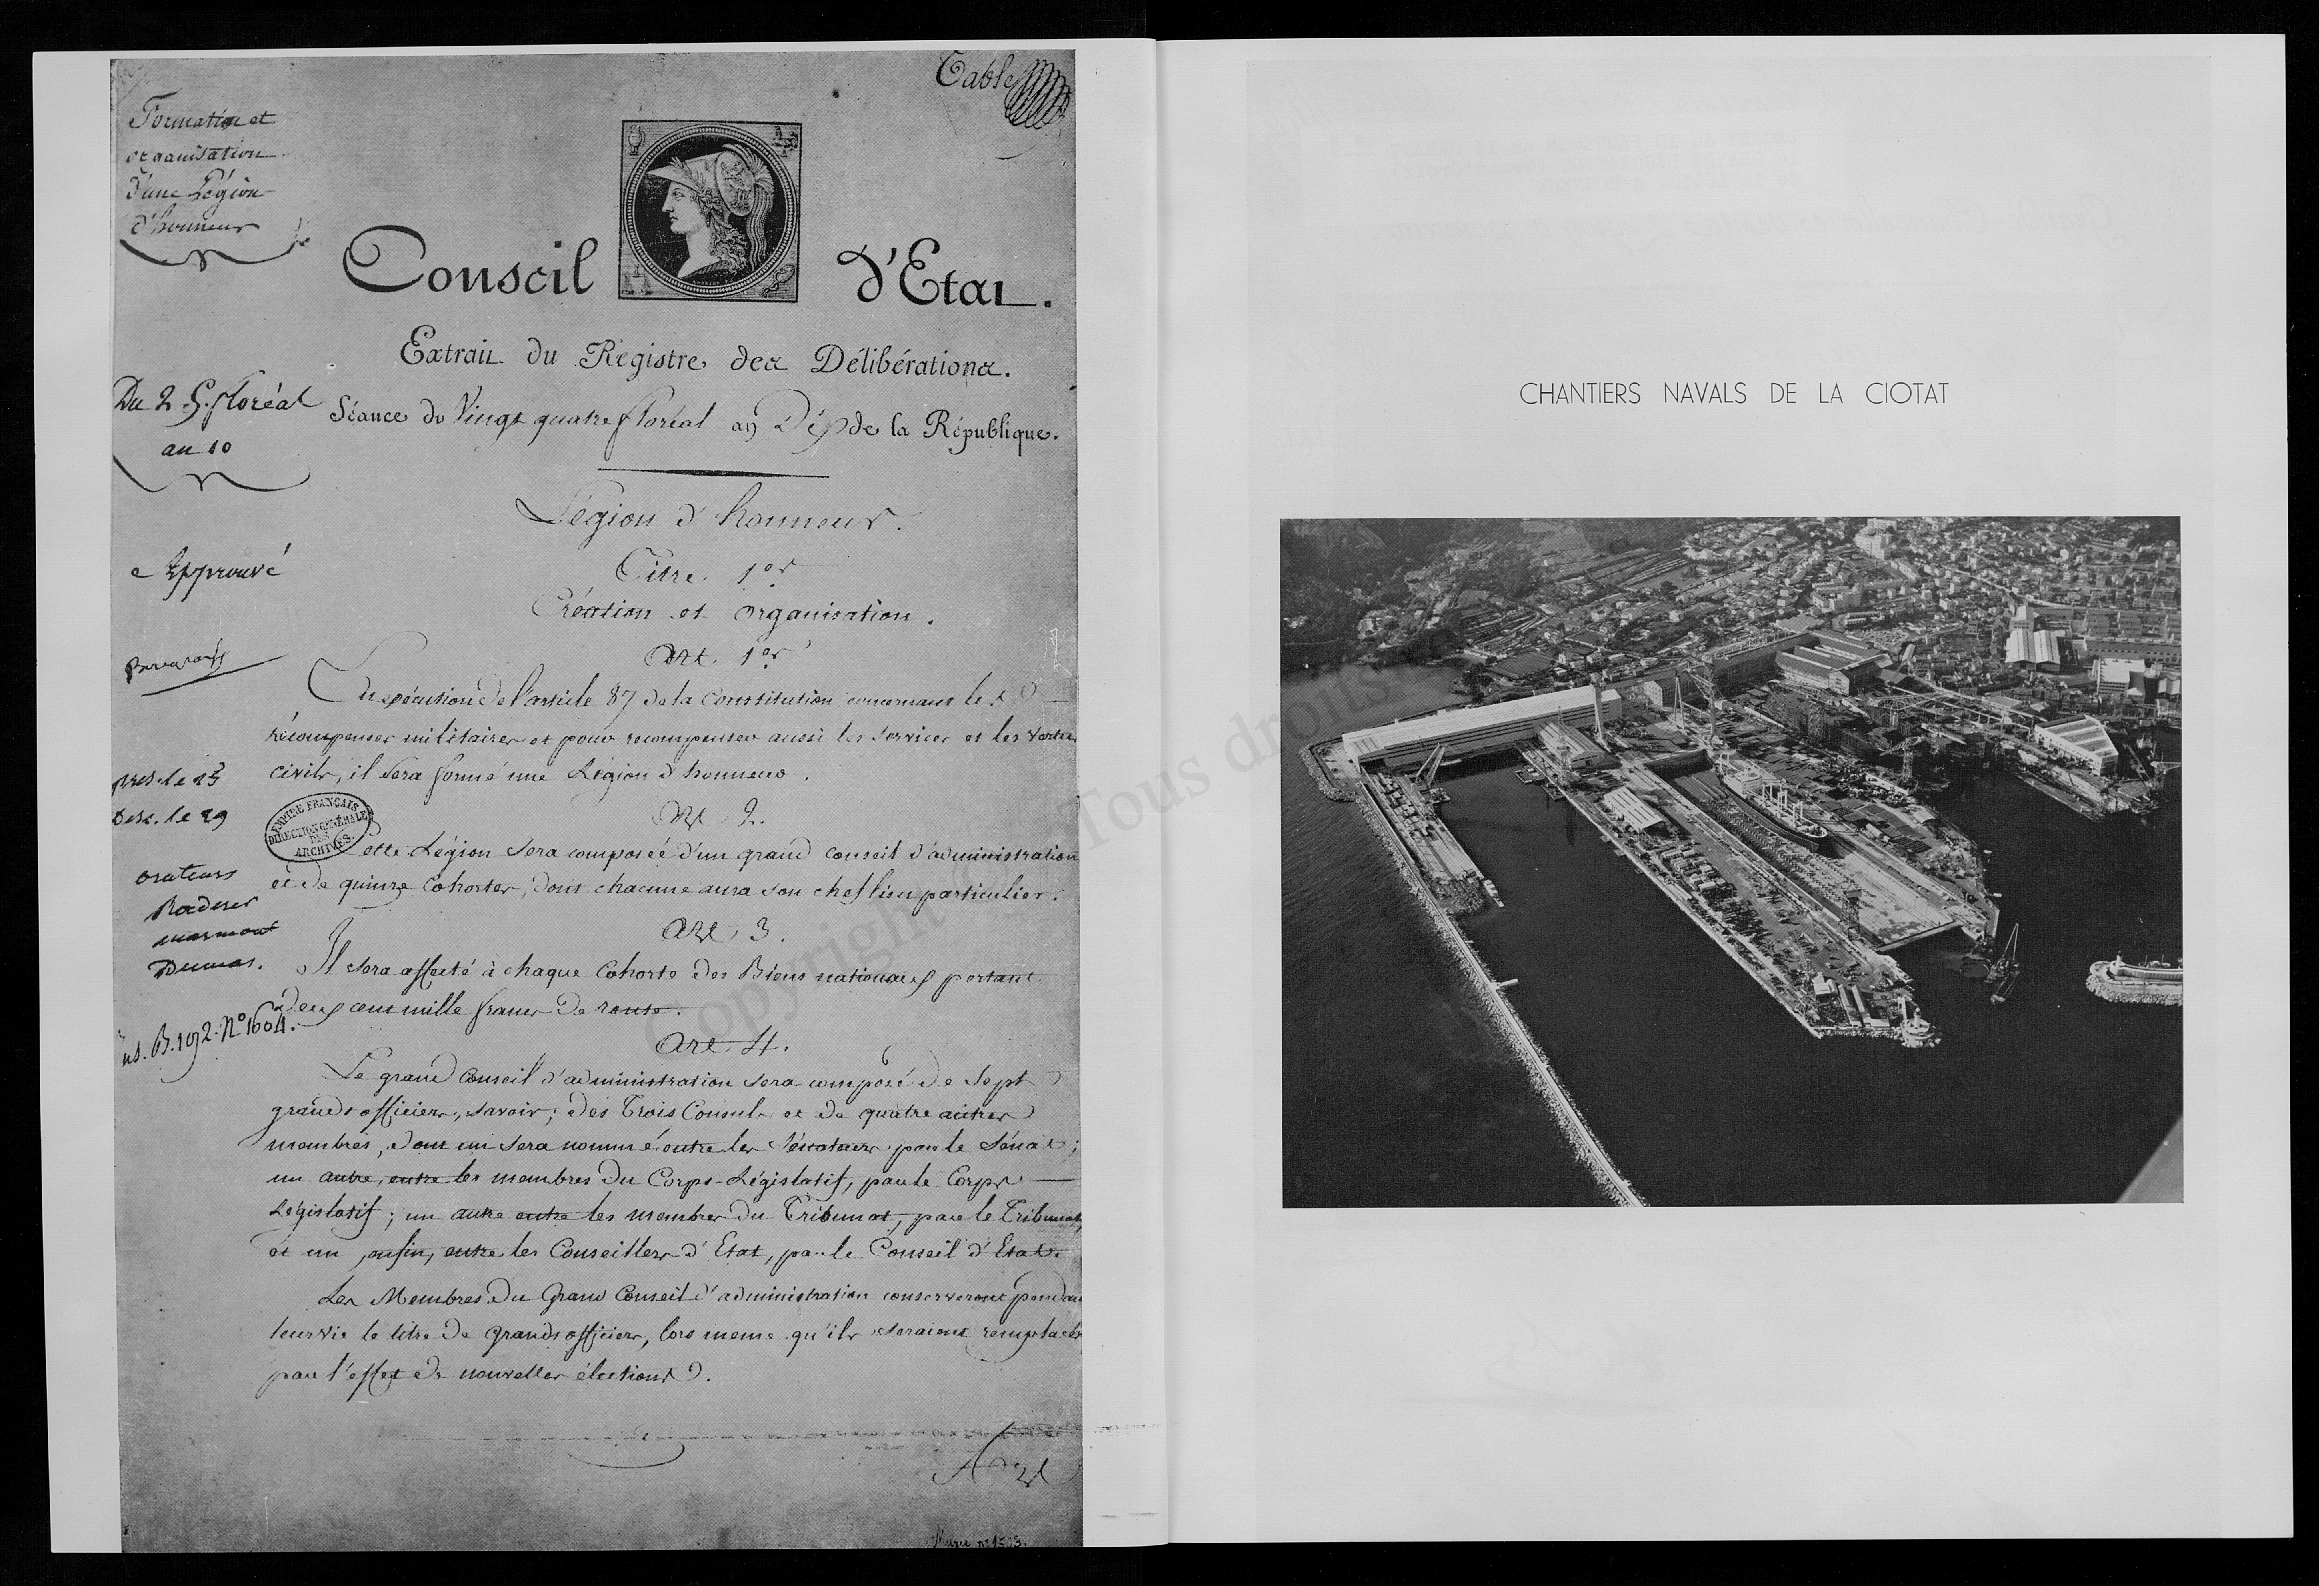 Table
Formation et
organisation
d'une Légion
d'honneur
Conseil d'Etat.
Extrait du Registre des Délibérations.
Du 2 . floréal
an 10
Séance du Vingt quatre floréal an Dix de la République.
Légion d'honneur.
Titre 1er
Création et organisation.
Approuvé
Art. 1er
En exécution de l'article 87 de la Constitution concernant les
récompenses militaires et pour recompenser aussi les services et les vertus
civils, il sera formé une Légion d'honneur.
pres. le 25
Disc. le 29
EMPIRE FRANÇAIS
DIRECTION GÉNÉRALE
DES
ARCHIVES
Art 2.
Cette Légion sera composée d'un grand conseil d'administration
et de quinze Cohortes, dont chacune aura son chef lieu particulier.
orateurs
Rœderer
marmont
Dumas.
Art 3.
Il sera affecté à chaque Cohorte des Biens nationaux portant
deux cent mille francs de rente.
B. 192. N° 1604.
Art 4.
Le grand Conseil d'administration sera composé de Sept
grands officiers, savoir; des Trois Consuls et de quatre autres
membres, dont un sera nommé entre les Sénateurs par le Sénat;
un autre, entre les membres du Corps-Législatif, par le Corps
Législatif; un autre entre les membres du Tribunat, par le Tribunat,
et un enfin, entre les Conseillers d'Etat, par le Conseil d'Etat.
Les Membres du Grand Conseil d'administration conserveront pendant
leur vie le titre de grands officiers, lors meme qu'ils seraient remplacés
par l'effet de nouvelles élections.
Art
CHANTIERS NAVALS DE LA CIOTAT
Copyright Tous droits